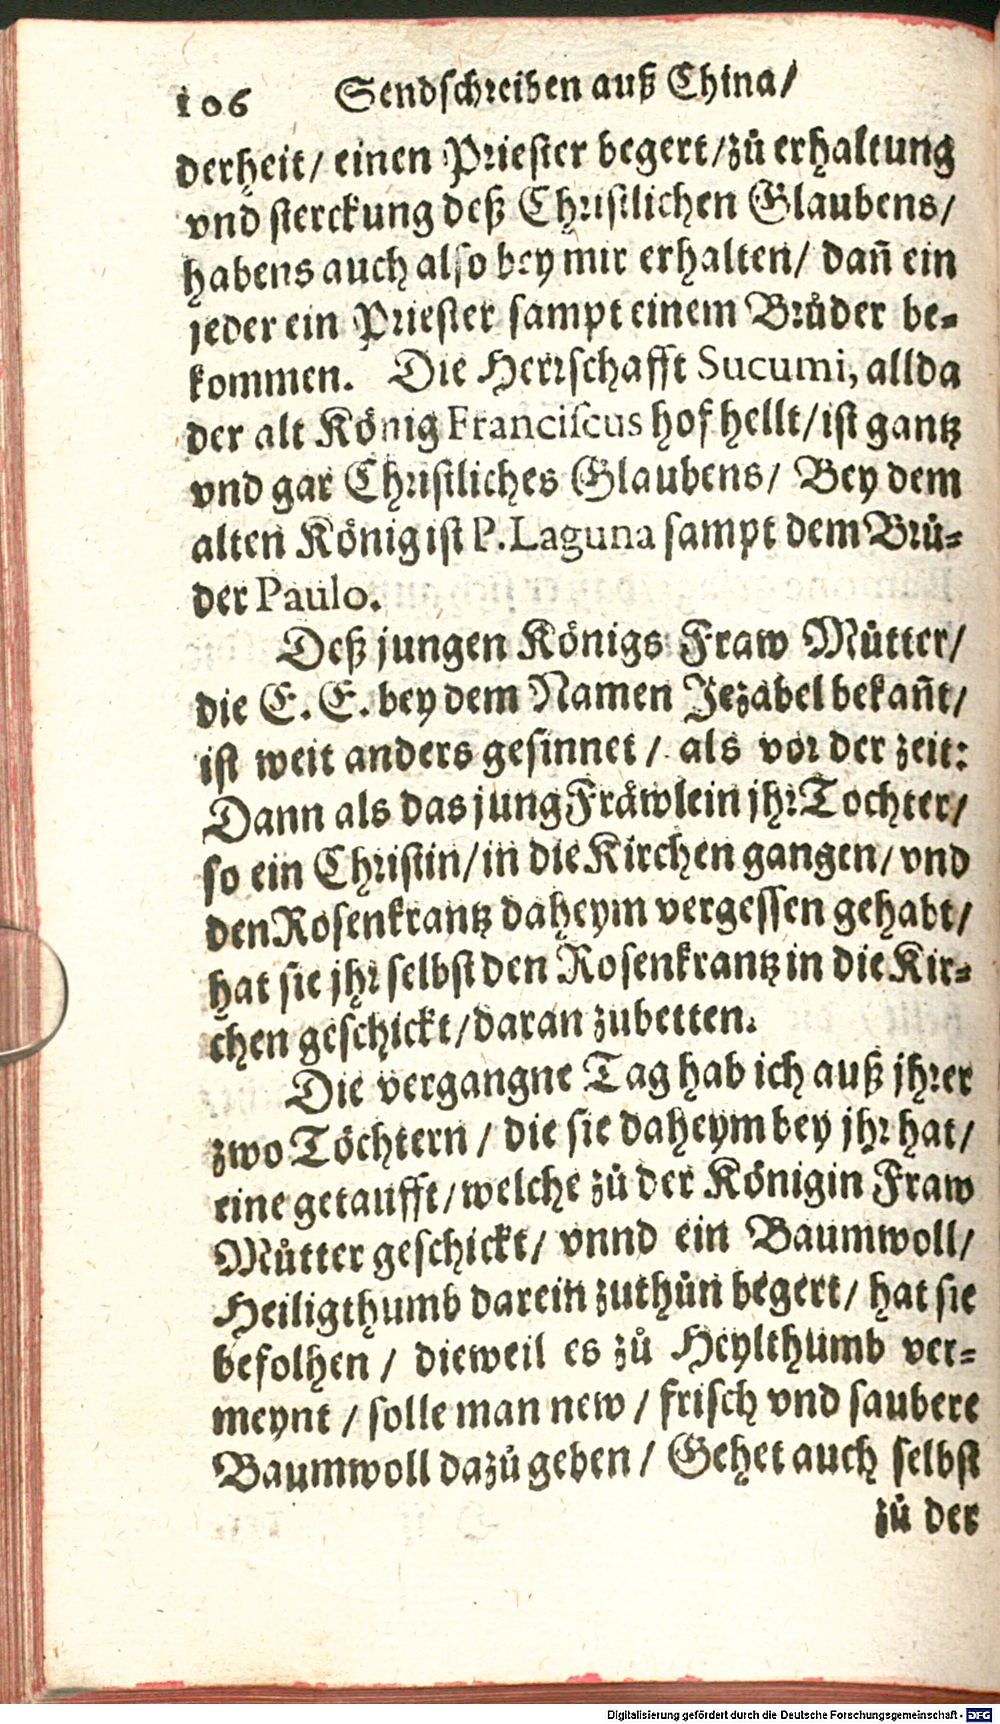 106 Sendschreiben auß China/
derheit/ einen Priester begert/zů erhaltung
vnd sterckung deß Christlichen Glaubens/
habens auch also bey mir erhalten/ dañ ein
jeder ein Priester sampt einem Brůder be-
kommen. Die Herrschafft Sucumi, allda
der alt König Franciscus hof hellt/ist gantz
vnd gar Christliches Glaubens/ Bey dem
alten König ist P. Laguna sampt dem Brů-
der Paulo.
Deß jungen Königs Fraw Můtter/
die E. E. bey dem Namen Jezabel bekañt/
ist weit anders gesinnet/ als vor der zeit:
Dann als das jung Fräwlein jhr Tochter/
so ein Christin/in die Kirchen gangen/vnd
den Rosenkrantz daheym vergessen gehabt/
hat sie jhr selbst den Rosenkrantz in die Kir-
chen geschickt/daran zubetten.
Die vergangne Tag hab ich auß jhrer
zwo Töchtern/ die sie daheym bey jhr hat/
eine getaufft/welche zů der Königin Fraw
Můtter geschickt/ vnnd ein Baumwoll/
Heiligthumb darein zuthůn begert/ hat sie
befolhen/ dieweil es zů Heylthumb ver-
meynt/ solle man new/ frisch vnd saubere
Baumwoll dazů geben/ Gehet auch selbst
zů der
Digitalisierung gefördert durch die Deutsche Forschungsgemeinschaft - DFG